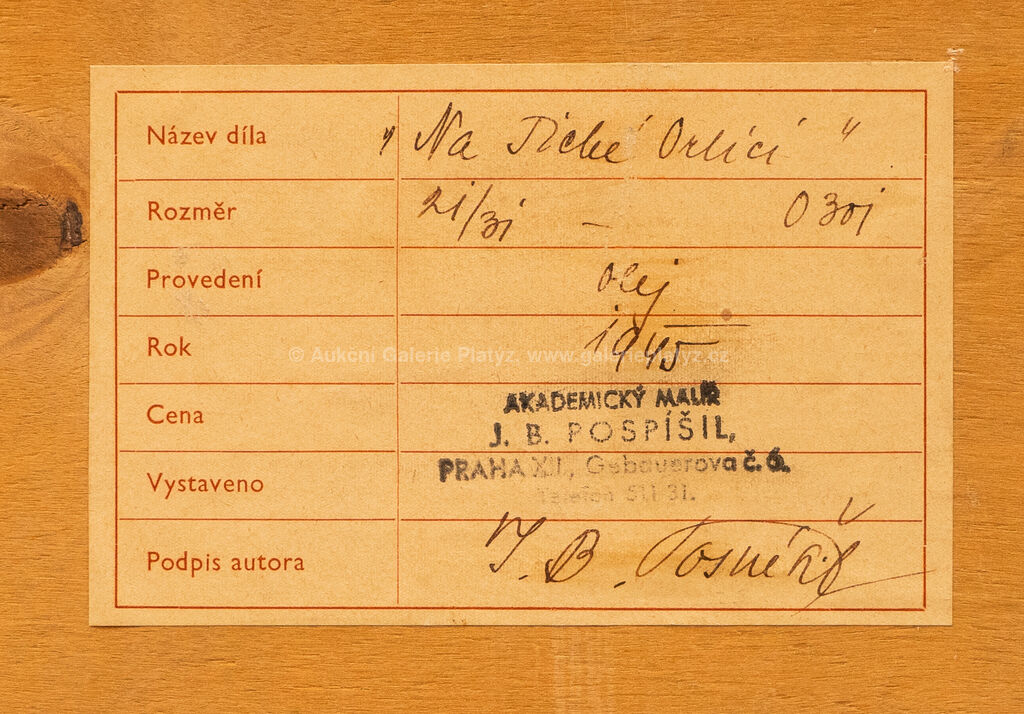 Název díla „ Na Tiché Orlici "
Rozměr 21/31 –
Provedení olej
Rok 1945
© Aukční Galerie Platýz, www.galerieplatyz.cz
Cena
AKADEMICKÝ MALÍŘ
J. B. POSPÍŠIL,
PRAHA XII., Gebauerova č. 6.
Vystaveno
Telefon 511 31.
Podpis autora J. B. Pospíšil